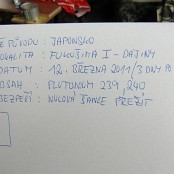 E PŮVODU : JAPONSKO
OKALITA : FUKUŠIMA I - DAJINY
DATUM : 12. BŘEZNA 2011/3 DNY PO
BSAH : PLUTONIUM 239, 240
BEZPEČÍ : NULOVÁ ŠANCE PŘEŽÍT